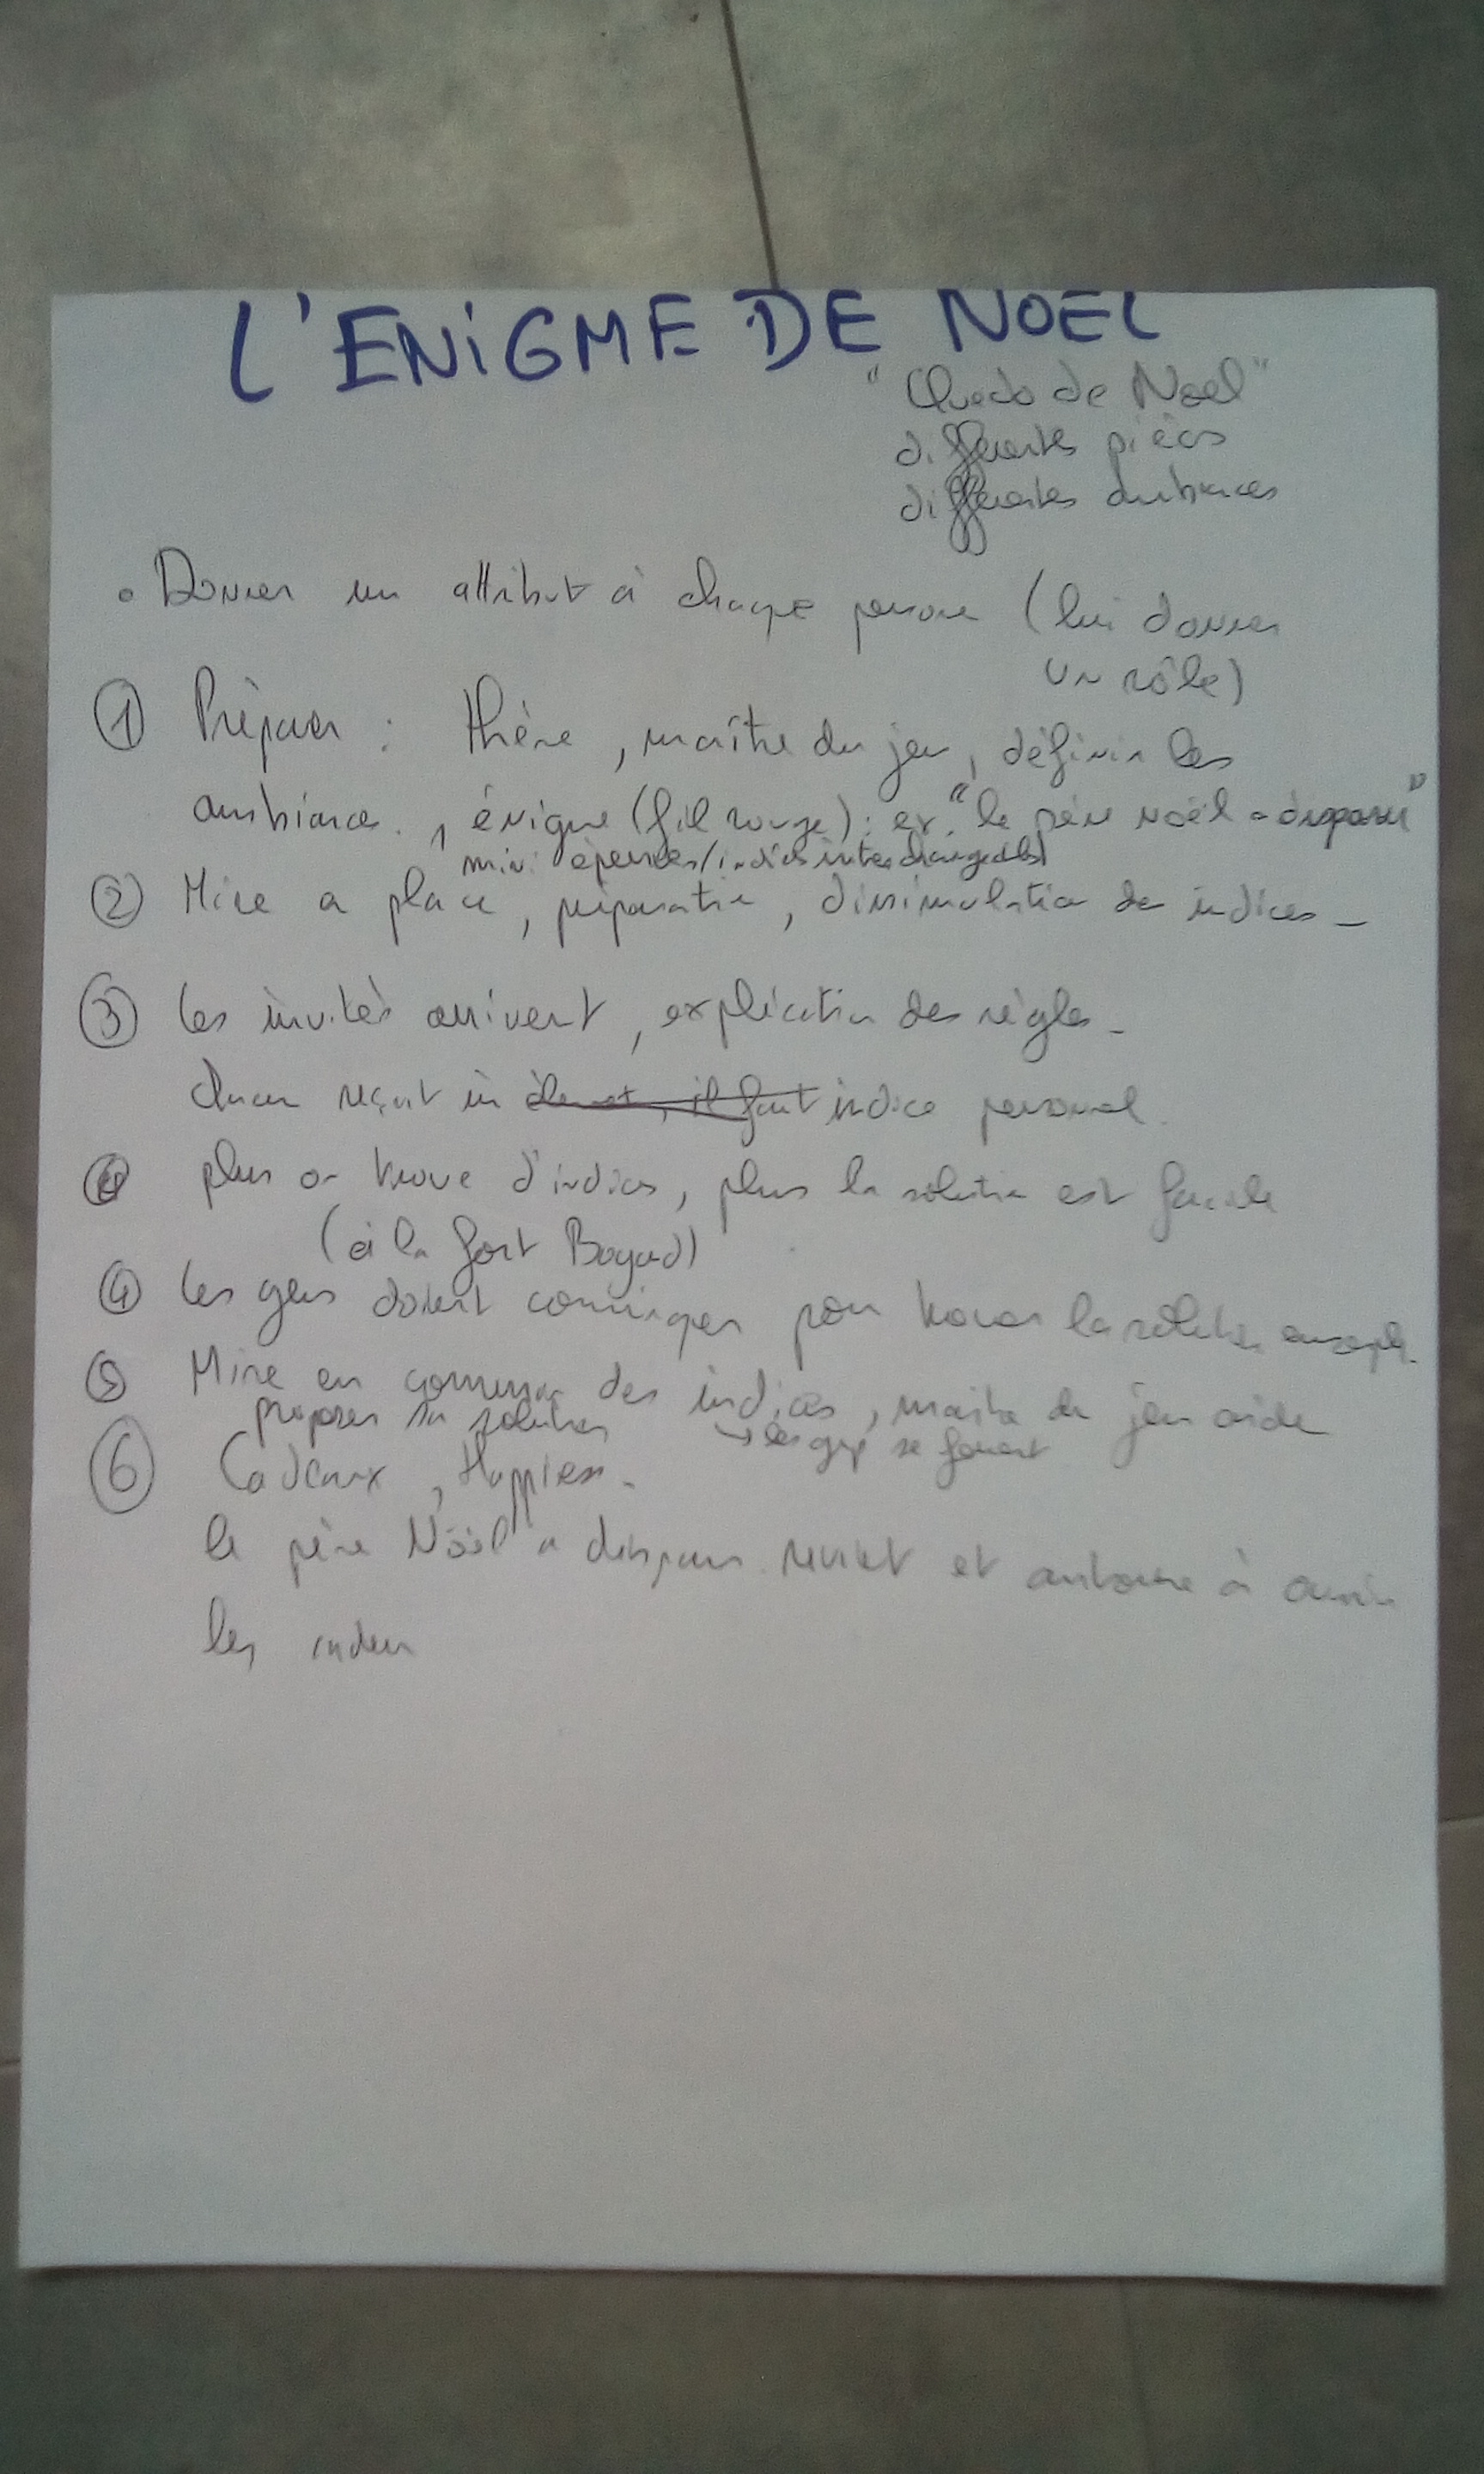 L'ENIGME DE NOEL
"Cluedo de Noël"
différentes pièces
différentes ambiances
• Donner un attribut à chaque personne (lui donner
un rôle)
① Préparer : thème, maître du jeu, définir les
ambiances, énigme (fil rouge) : ex. "le père noël a disparu"
mini épreuves/indices interchangeables
② Mise en place, préparation, dissimulation des indices -
③ Les invités arrivent, explication des règles -
chacun reçoit un indice personnel.
plus on trouve d'indices, plus la solution est facile
(à la fort Boyard)
④ Les gens doivent communiquer pour trouver la solution
⑤ Mise en commun des indices, maitre du jeu aide
proposer sa solution
→ les gens se
⑥ Cadeaux, Happiness -
le père Noël a disparu revient et autorise à ouvrir
les